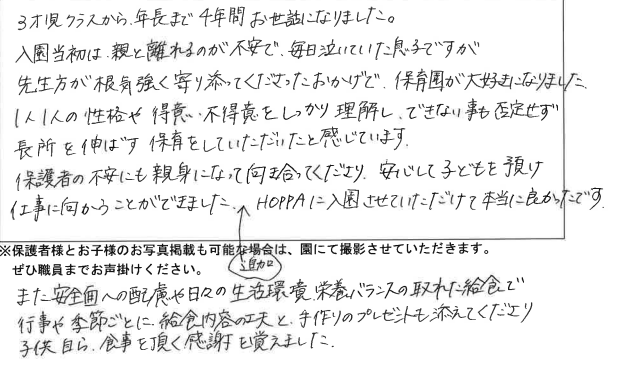 3才児クラスから、年長まで4年間お世話になりました。
入園当初は、親と離れるのが不安で、毎日泣いていた息子ですが
先生方が根気強く寄り添ってくださったおかげで、保育園が大好きになりました。
1人1人の性格や得意・不得意をしっかり理解し、できない事も否定せず
長所を伸ばす保育をしていただいたと感じています。
保護者の不安にも親身になって向き合ってくださり、安心して子どもを預け
仕事に向かうことができました。HOPPAに入園させていただけて本当に良かったです。
※保護者様とお子様のお写真掲載も可能な場合は、園にて撮影させていただきます。
ぜひ職員までお声掛けください。
追加
また安全面への配慮や日々の生活環境、栄養バランスの取れた給食で
行事や季節ごとに、給食内容の工夫と、手作りのプレゼントも添えてくださり
子供自ら、食事を頂く感謝を覚えました。